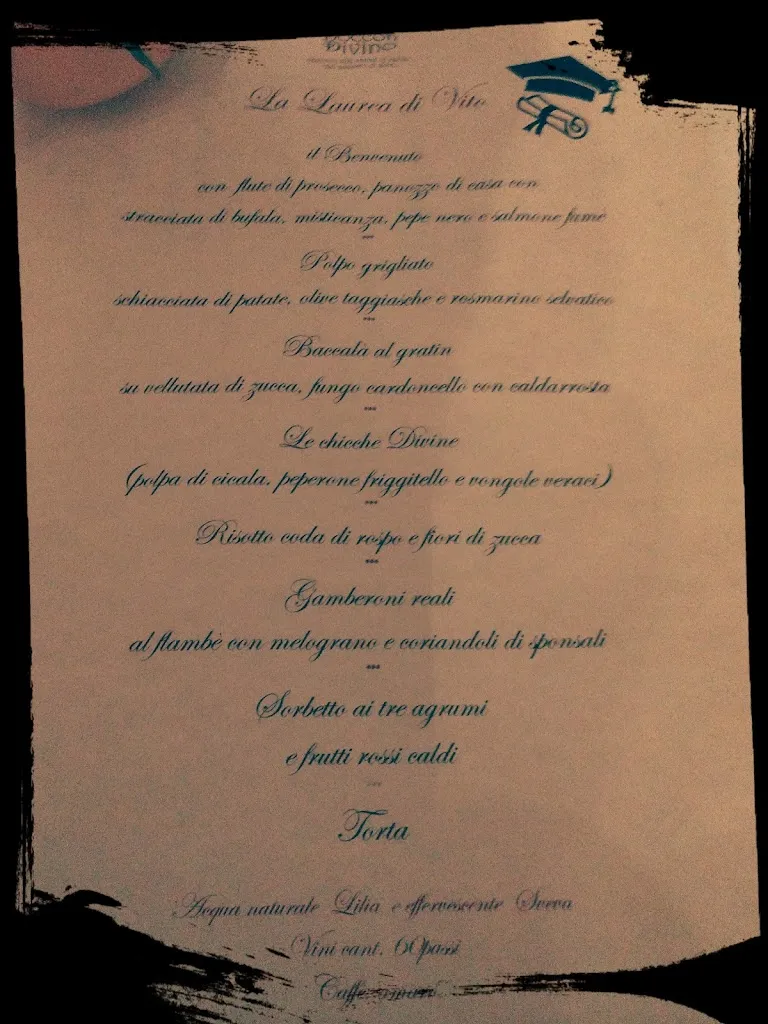 Boccon
Divino
La Laurea di Vito
il Benvenuto
con flute di prosecco, panozzo di casa con
stracciata di bufala, misticanza, pepe nero e salmone fumè
***
Polpo grigliato
schiacciata di patate, olive taggiasche e rosmarino selvatico
***
Baccalà al gratin
su vellutata di zucca, fungo cardoncello con caldarrosta
***
Le chicche Divine
(polpa di cicala, peperone friggitello e vongole veraci)
***
Risotto coda di rospo e fiori di zucca
***
Gamberoni reali
al flambè con melograno e coriandoli di sponsali
***
Sorbetto ai tre agrumi
e frutti rossi caldi
***
Torta
Acqua naturale Lilia e effervescente Sveva
Vini cant. 60passi
Caffè, amari